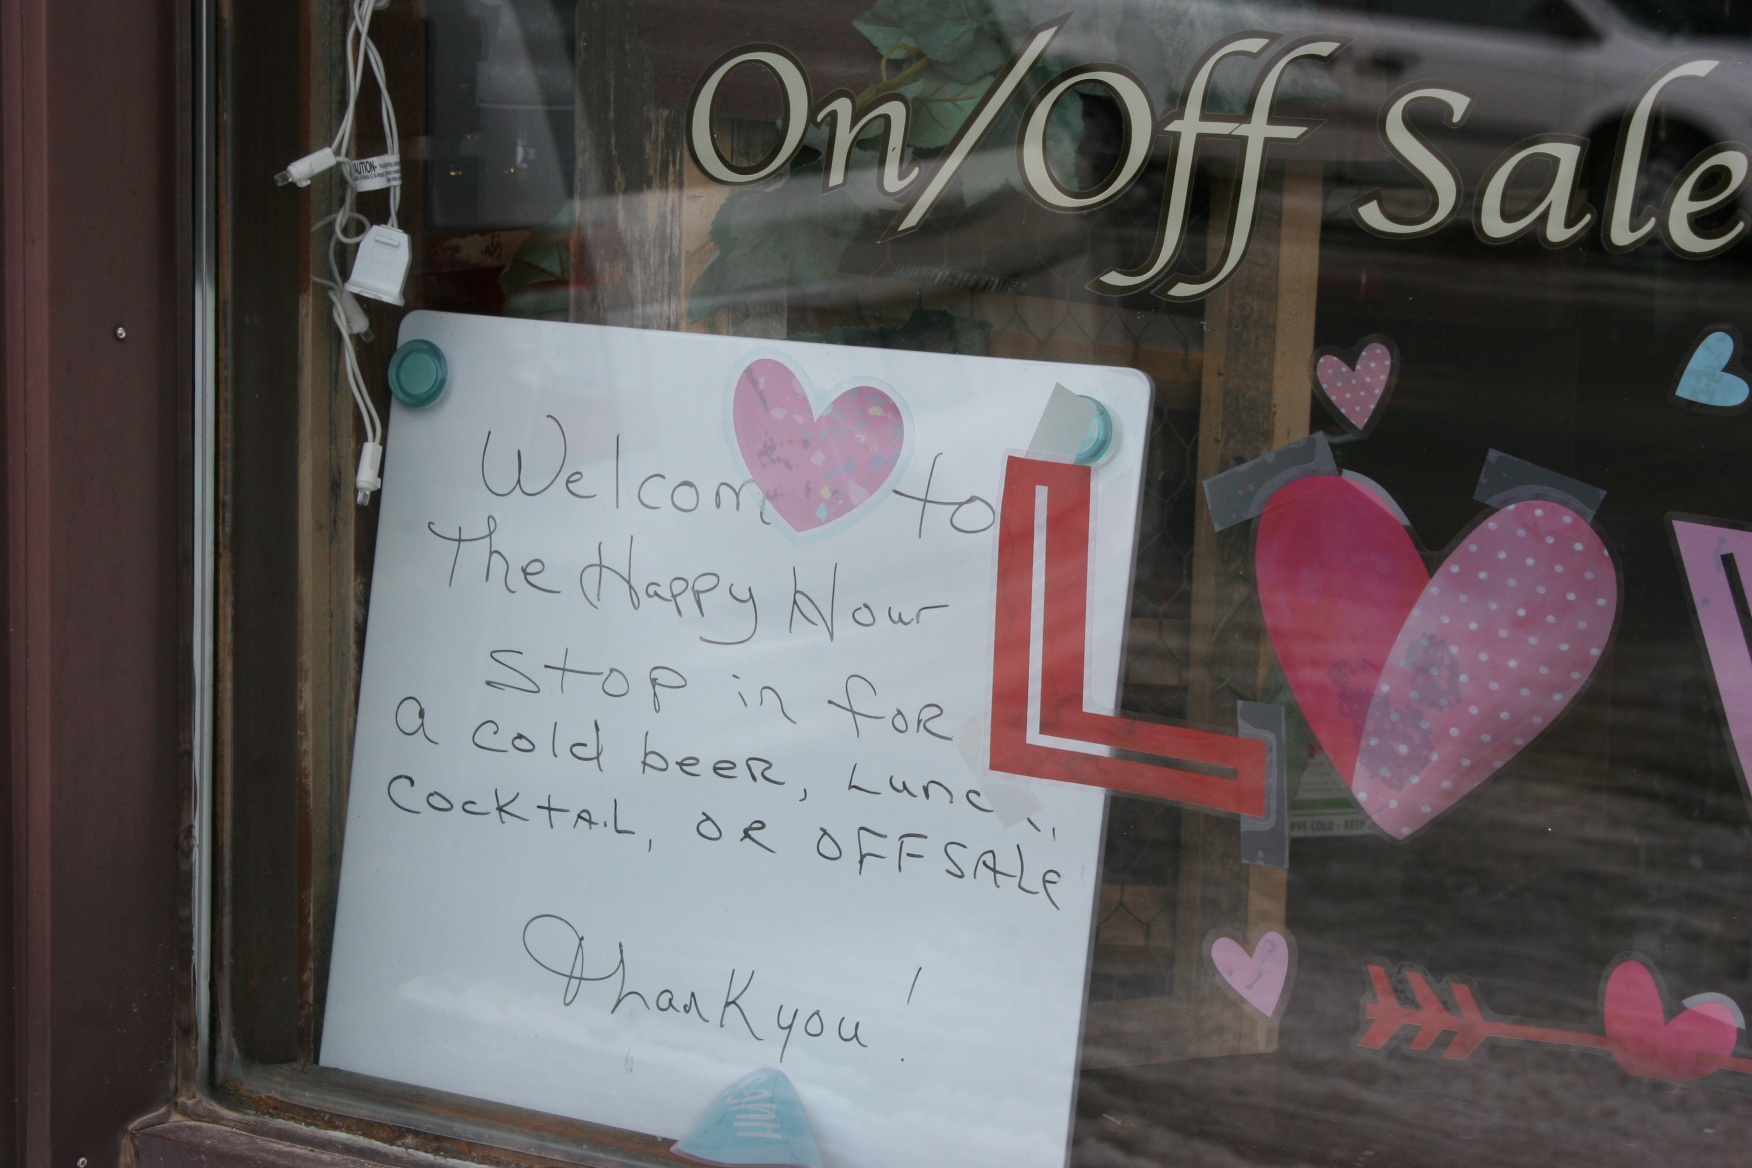 On/Off Sale
AUTION-
Welcom to
The Happy Hour
Stop in for
a cold beer, Lunch,
Cocktail, OR OFFSALE
Thank you!
L
V
RVE COLD - KEEP